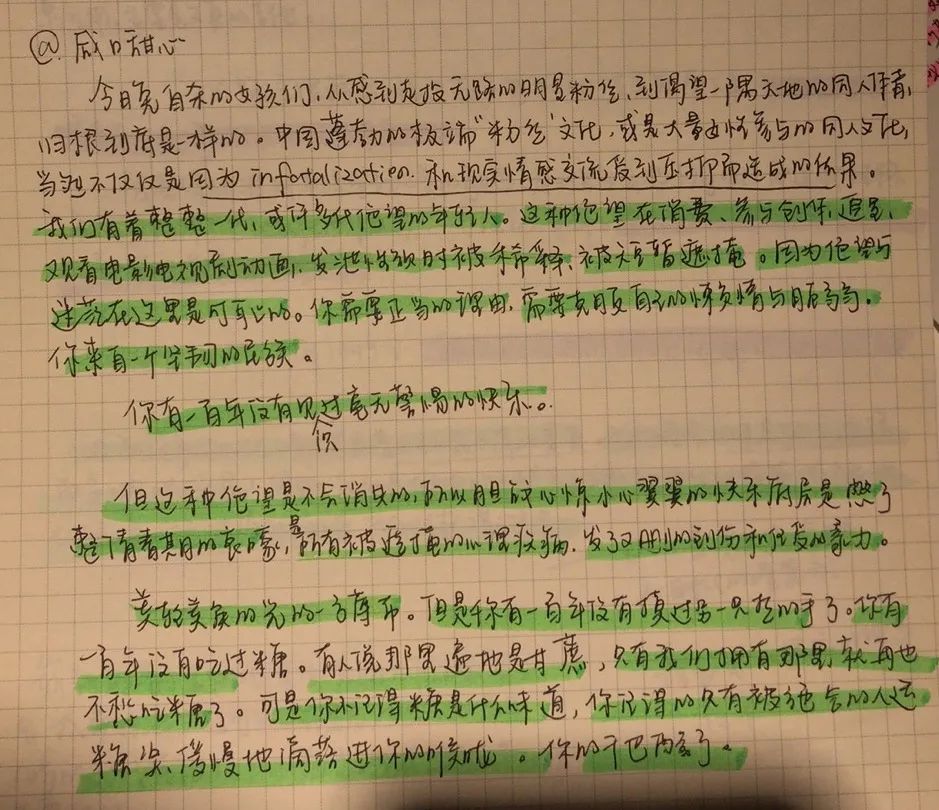 @咸口甜心
今日凭自杀的女孩们,从感到走投无路的明星粉丝,到渴望一隅天地的同人作者,
归根到底是一样的。中国蓬勃的极端“粉丝”文化,或是大量女性参与的同人文化,
当然不仅仅是因为infantalization.和现实情感交流受到压抑而造成的结果。
我们有着整整一代,或许多代绝望的年轻人。这种绝望在消费、参与创作,追星、
观看电影电视剧动画,发泄性欲时被稀释、被短暂遮掩。因为绝望与
迷茫在这里是可耻的。你需要正当的理由,需要克服自己的懒惰情与脆弱。
你来自一个坚韧的民族。
你有一百年没有见识过毫无警惕的快乐。
但这种绝望是不会消失的,所以胆颤心惊小心翼翼的快乐底层是憋了
整个青春期的哀嚎,是所有被遮掩的心理疾病,发了又删的割伤和自发的暴力。
美轮美奂的光的一方幕布。但是你有一百年没有摸过另一只茬的手了。你有
一百年没有吃过糖。有人说那里遍地是甘蔗,只有我们拥有那里,就再也
不愁吃糖了。可是你不记得糖是什么味道,你记得的只有被绝会的人运
糖浆、缓慢地滴落进你的喉咙。你的下巴两了。